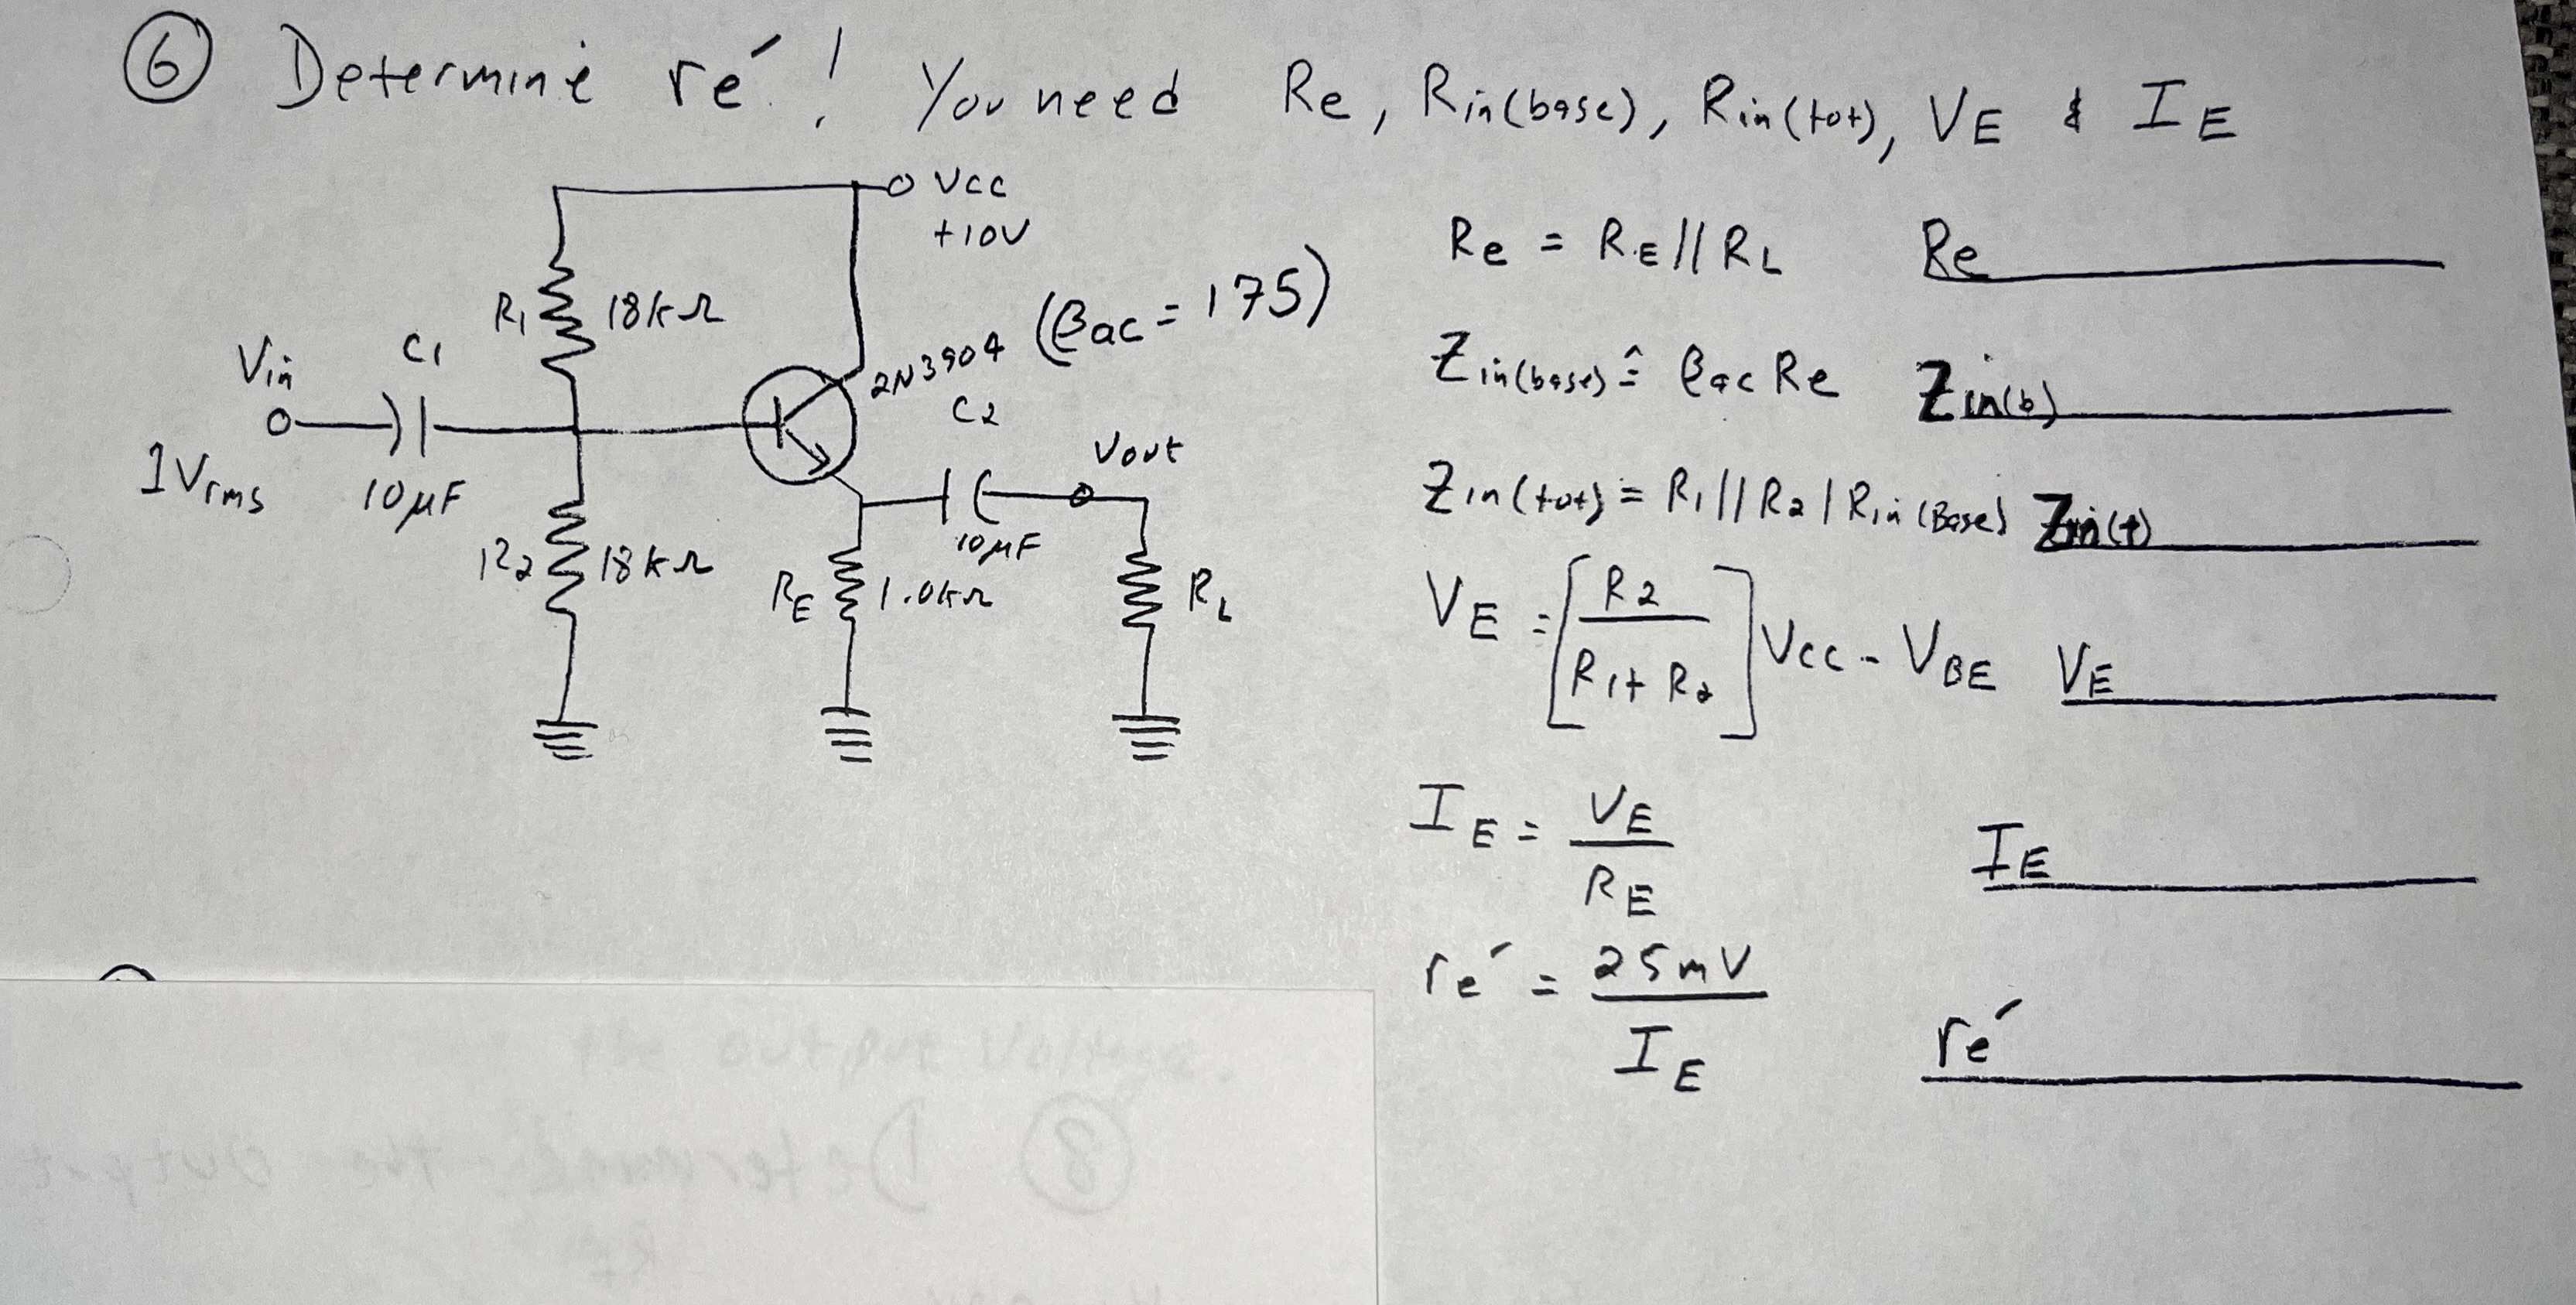 ⑥ Determine re′! You need Re, Rin(base), Rin(tot), VE & IE
VCC
+10V
R1 18kΩ
(βac = 175)
2N3904
Vin
C1
1Vrms
10μF
C2
Vout
10μF
R2 18kΩ
RE 1.0kΩ
RL
Re = RE//RL Re
Zin(base) ≙ βac Re Zin(b)
Zin(tot) = R1//R2/Rin(Base) Zin(t)
VE = [R2 / R1+R2] VCC - VBE VE
IE = VE / RE IE
re′ = 25mV / IE re′
the output voltage.
⑧ Determine the output